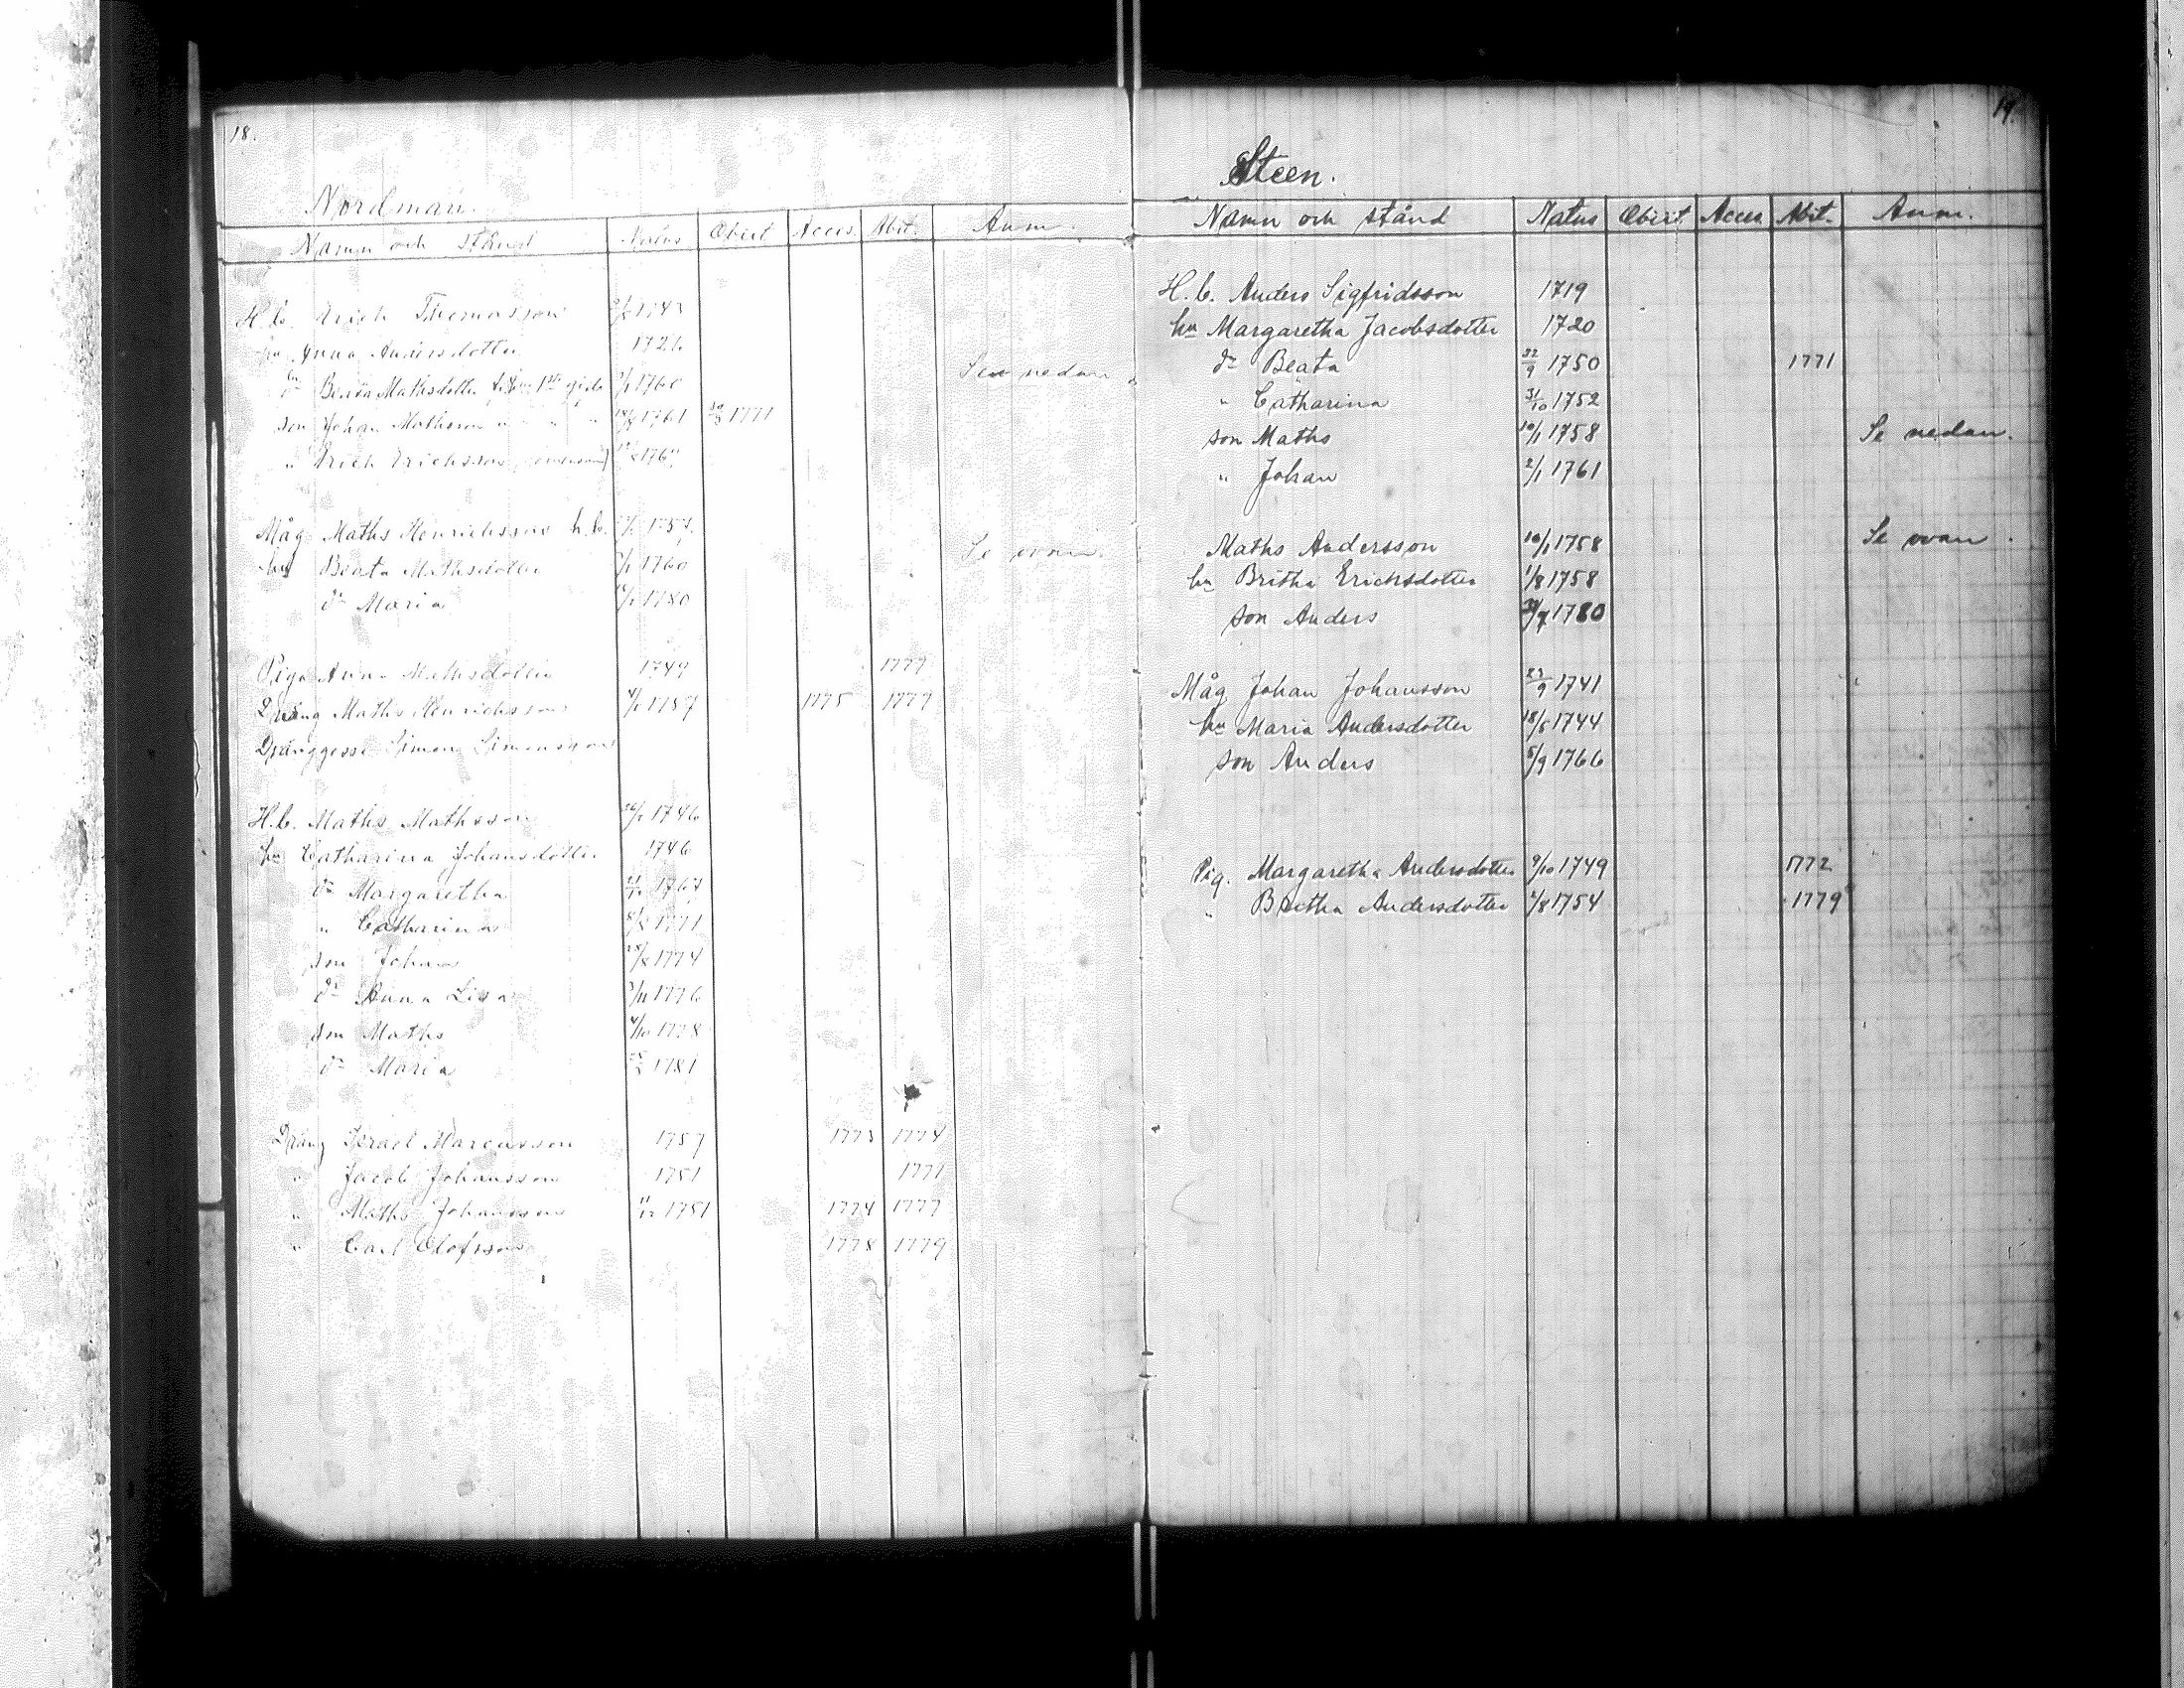 18.
Nordman.
Namn och stånd Natus Obiit Acces. Abit. Anm.
H.b. Erich Thomasson 1743
hu Anna Andersdotter 1726
dr Beata Mathsdotter 1sta gifte 1760 Se nedan
son Johan Mathsson " " " 1761 1771
" Erich Erichsson
Måg Maths Henrichsson h.b.
hu Beata Mathsdotter 1760 Se ovan.
dr Maria 1780
Piga Anna Mathsdotter 1749 1779
Dräng Maths Henrichsson 1757 1775 1779
Dränggosse Simon Simonsson
H.b. Maths Mathsson 1746
hu Catharina Johansdotter 1746
dr Margaretha
" Catharina 1771
son Johan 1774
dr Anna Lisa 3/11 1776
son Maths 4/10 1778
dr Maria 1781
Dräng Israel Marcusson 1757 1773 1774
" Jacob Johansson 1751 1771
" Maths Johansson 11/12 1751 1774 1777
" Carl Olofsson 1778 1779
19.
Steen.
Namn och stånd Natus Obiit Acces. Abit. Anm.
H.b. Anders Sigfridsson 1719
hu Margaretha Jacobsdotter 1720
dr Beata 22/9 1750 1771
" Catharina 31/10 1752
son Maths 10/1 1758 Se nedan.
" Johan 2/1 1761
Maths Andersson 10/1 1758 Se ovan.
hu Britha Erichsdotter 1/8 1758
son Anders 1780
Måg Johan Johansson 23/9 1741
hu Maria Andersdotter 18/5 1744
son Anders 5/9 1766
Pig. Margaretha Andersdotter 9/10 1749 1772
" Britha Andersdotter 1754 1779